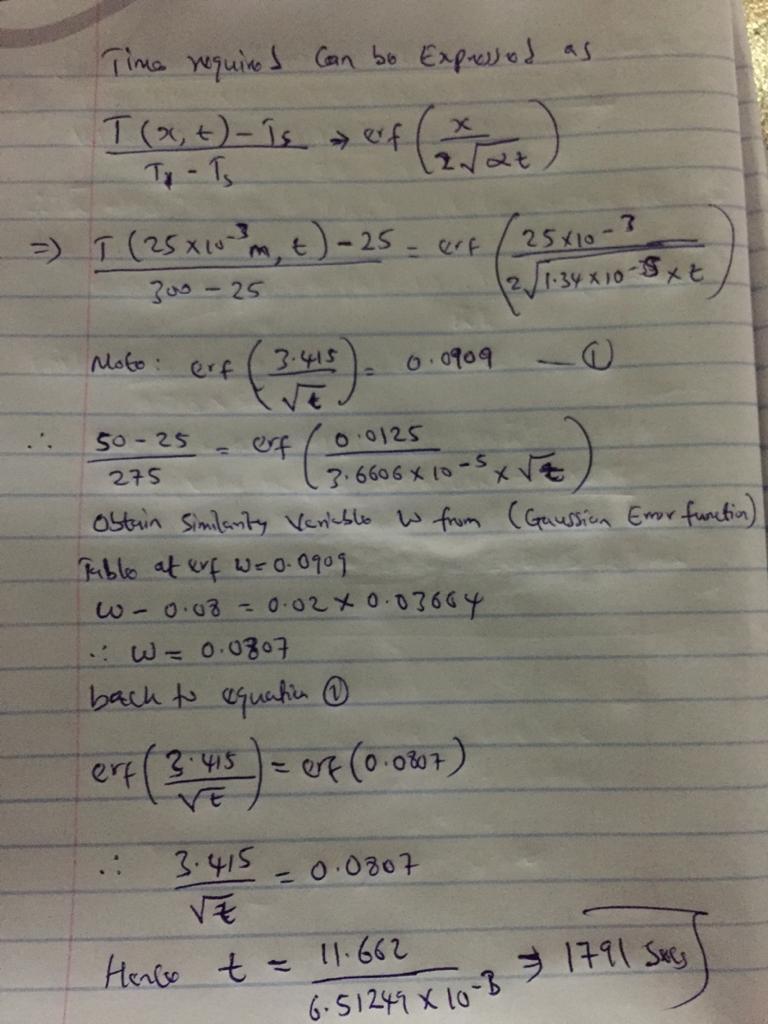 Time required Can be Expressed as
T(x,t) - Ts / Ti - Ts → erf (x / 2√αt)
⇒ T(25x10⁻³m, t) - 25 / 300 - 25 = erf (25x10⁻³ / 2√1.34x10⁻⁵ x t)
Note: erf (3.415 / √t) = 0.0909 — ①
∴ 50-25 / 275 = erf (0.0125 / 3.6606 x 10⁻⁵ x √t)
Obtain Similarity Variable W from (Gaussian Error function)
Table at erf W=0.0909
W - 0.08 = 0.02 x 0.03664
∴ W = 0.0807
back to equation ①
erf (3.415 / √t) = erf (0.0807)
∴ 3.415 / √t = 0.0807
Hence t = 11.662 / 6.51249 x 10⁻³ ⇒ 1791 Secs